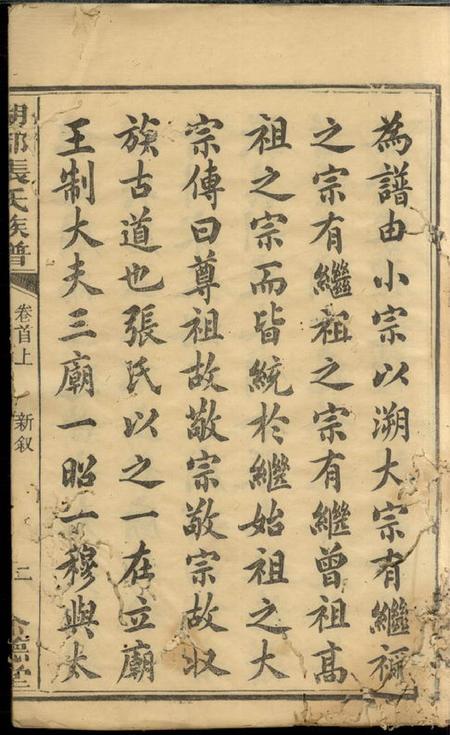 為譜由小宗以溯大宗有繼禰
之宗有繼祖之宗有繼曾祖高
祖之宗而皆統於繼始祖之大
宗傳曰尊祖故敬宗敬宗故收
族古道也張氏以之一在立廟
王制大夫三廟一昭一穆與太
張氏族譜
卷首上
新叙
二
德堂